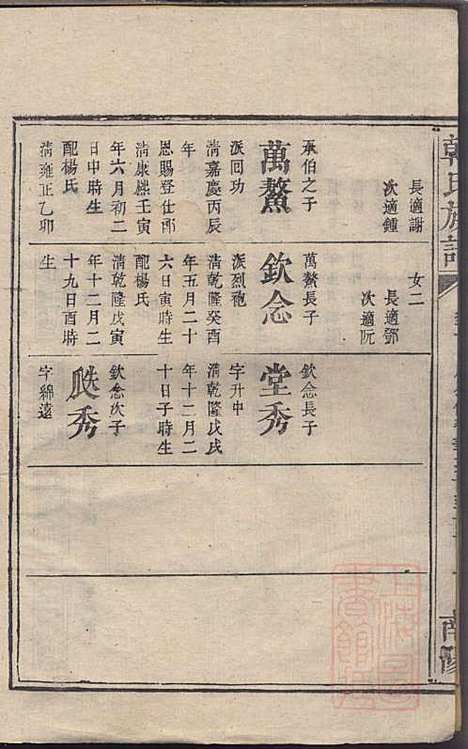 韓氏族譜
長適謝
次適鍾
承伯之子
萬鰲
派回功
清嘉慶丙辰
年
恩賜登仕郎
清康熙壬寅
年六月初二
日申時生
配楊氏
清雍正乙卯
女二
長適鄧
次適阮
萬鰲長子
欽念
派烈苞
清乾隆癸酉
年五月二十
六日寅時生
配楊氏
清乾隆戊寅
年十二月二
十九日酉時
生
欽念長子
堂秀
字升中
清乾隆戊戌
年十二月二
十日子時生
欽念次子
瓞秀
字綿遠